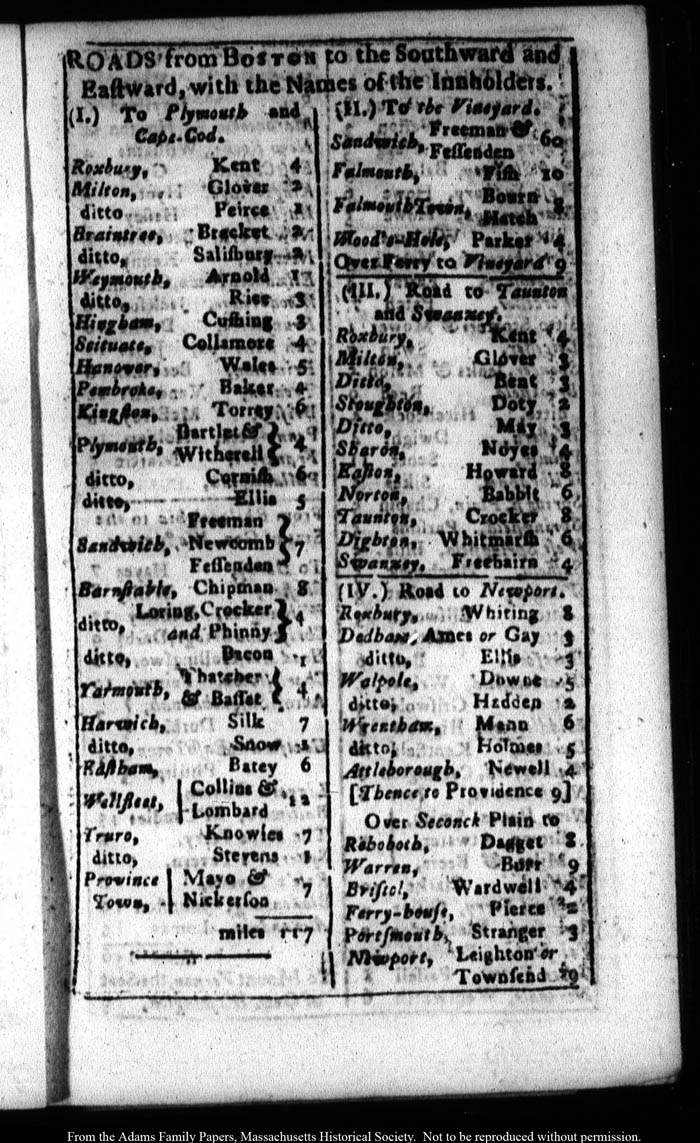 ROADS from BOSTON to the Southward and
Eaſtward, with the Names of the Innholders.
(I.) To Plymouth and
Cape-Cod.
Roxbury, Kent 4
Milton, Glover 2
ditto Peirce 1
Braintree, Bracket 2
ditto, Saliſbury 2
Weymouth, Arnold 1
ditto, Rice 3
Hingham, Cuſhing 3
Scituate, Collamore 4
Hanover, Wales 5
Pembroke, Baker 4
Kingſton, Torrey 6
Plymouth, Bartlet &
Witherell 4
ditto, Corniſh 6
ditto, Ellis 5
Freeman
Sandwich, Newcomb 7
Feſſenden
Barnſtable, Chipman 8
ditto, Loring, Crocker
and Phinny 4
ditto, Bacon 1
Yarmouth, Thatcher
& Baſſet 4
Harwich, Silk 7
ditto, Snow
Eaſtham, Batey 6
Wellfleet, Collins &
Lombard 12
Truro, Knowles 7
ditto, Stevens 1
Province Mayo &
Town, Nickerſon 7
miles 117
(II.) To the Vineyard.
Sandwich, Freeman & 60
Feſſenden
Falmouth, Fiſh 10
Falmouth Town, Bourn
Hatch 8
Wood's-Hole, Parker 4
Over Ferry to Vineyard 9
(III.) Road to Taunton
and Swanzey.
Roxbury, Kent 4
Milton, Glover
Ditto, Bent 3
Stoughton, Doty 2
Ditto, May 3
Sharon, Noyes 4
Eaſton, Howard 8
Norton, Babbit 6
Taunton, Crocker 8
Dighton, Whitmarſh 6
Swanzey, Freebairn 4
(IV.) Road to Newport.
Roxbury, Whiting 8
Dedham, Ames or Gay 3
ditto, Ellis 3
Walpole, Downe 5
ditto, Hadden 2
Wrentham, Mann 6
ditto, Holmes 5
Attleborough, Newell 4
[Thence to Providence 9]
Over Seconck Plain to
Rehoboth, Dagget 8
Warren, Burr 9
Briſtol, Wardwell 4
Ferry-houſe, Pierce 2
Portſmouth, Stranger 3
Newport, Leighton or
Townſend 9
From the Adams Family Papers, Massachusetts Historical Society. Not to be reproduced without permission.